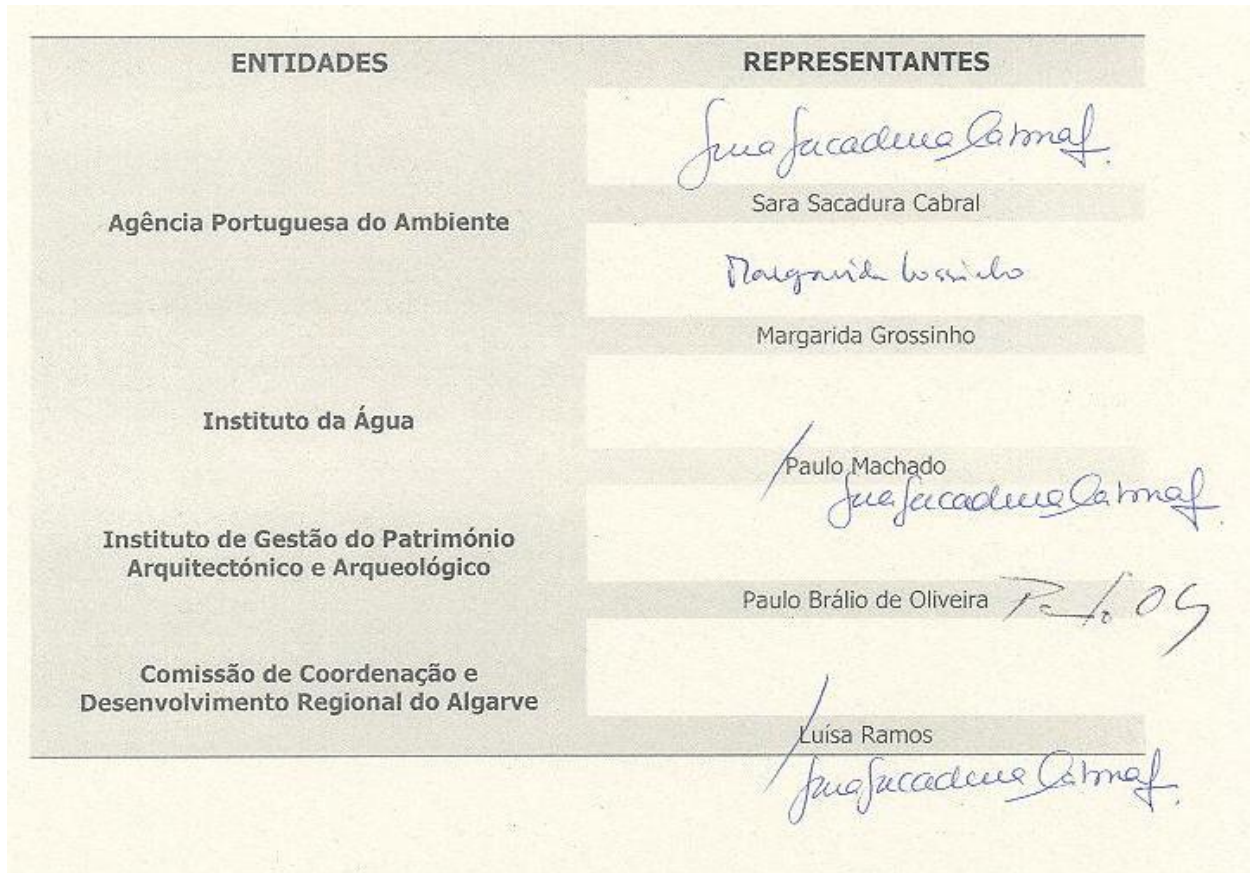 ENTIDADES
REPRESENTANTES
Sara Sacadura Cabral
Agência Portuguesa do Ambiente
Sara Sacadura Cabral
Margarida Grossinho
Margarida Grossinho
Instituto da Água
Paulo Machado
Sara Sacadura Cabral
Instituto de Gestão do Património
Arquitectónico e Arqueológico
Paulo Brálio de Oliveira
Comissão de Coordenação e
Desenvolvimento Regional do Algarve
Luísa Ramos
Sara Sacadura Cabral